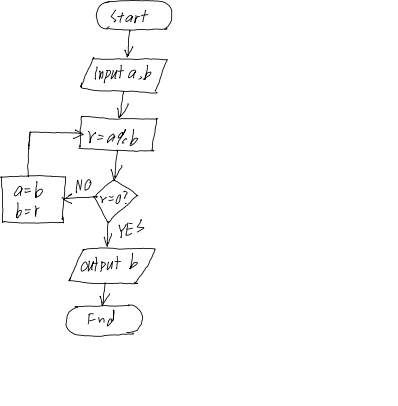 Start
Input a,b
r=a%b
NO
a=b
b=r
r=0?
YES
output b
End